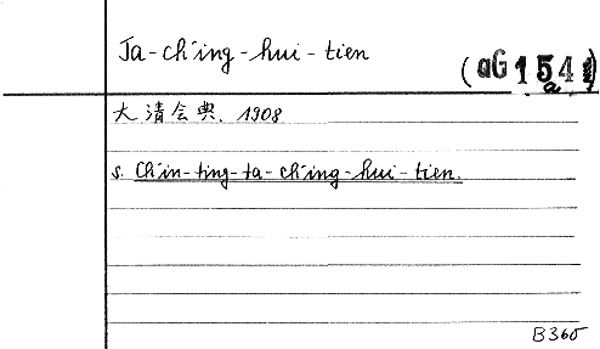 Ta-ch'ing-hui-tien
(aG 154a)
大清会典. 1908
s. Ch'in-ting-ta-ch'ing-hui-tien.
B 365